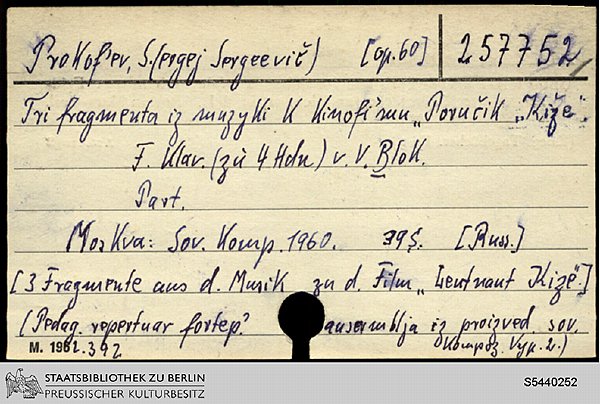 Prokof'ev, S.(ergej Sergeevič) [op.60] 257752
Tri fragmenta iz muzyki k kinofil'mu „Poručik „Kiže".
F. Klav. (zu 4 Hdn.) v. V. Blok.
Part.
Moskva: Sov. Komp. 1960. 39 S. [Russ.]
[3 Fragmente aus d. Musik zu d. Film „Leutnant Kižé".]
(Pedag. repertuar fortep. ansemblja iz proizved. sov.
kompoz. Vyp. 2.)
M. 1962.392
STAATSBIBLIOTHEK ZU BERLIN
PREUSSISCHER KULTURBESITZ
S5440252